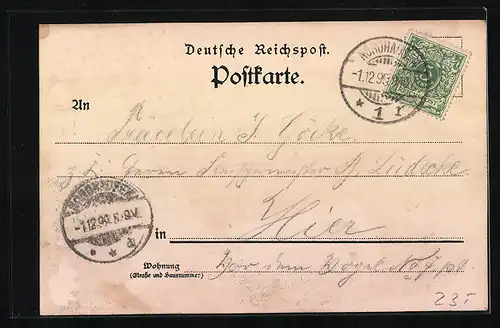 Deutsche Reichspost.
Postkarte.
NORDHAUSEN
-1.12.99
* 1 r
An
Fräulein J. Göcke
z. E. Herrn
Hier
NORDHAUSEN
-1.12.99. 8-9V.
in
Wohnung
(Straße und Hausnummer)
Vor dem Vogel No 7 pa.
235